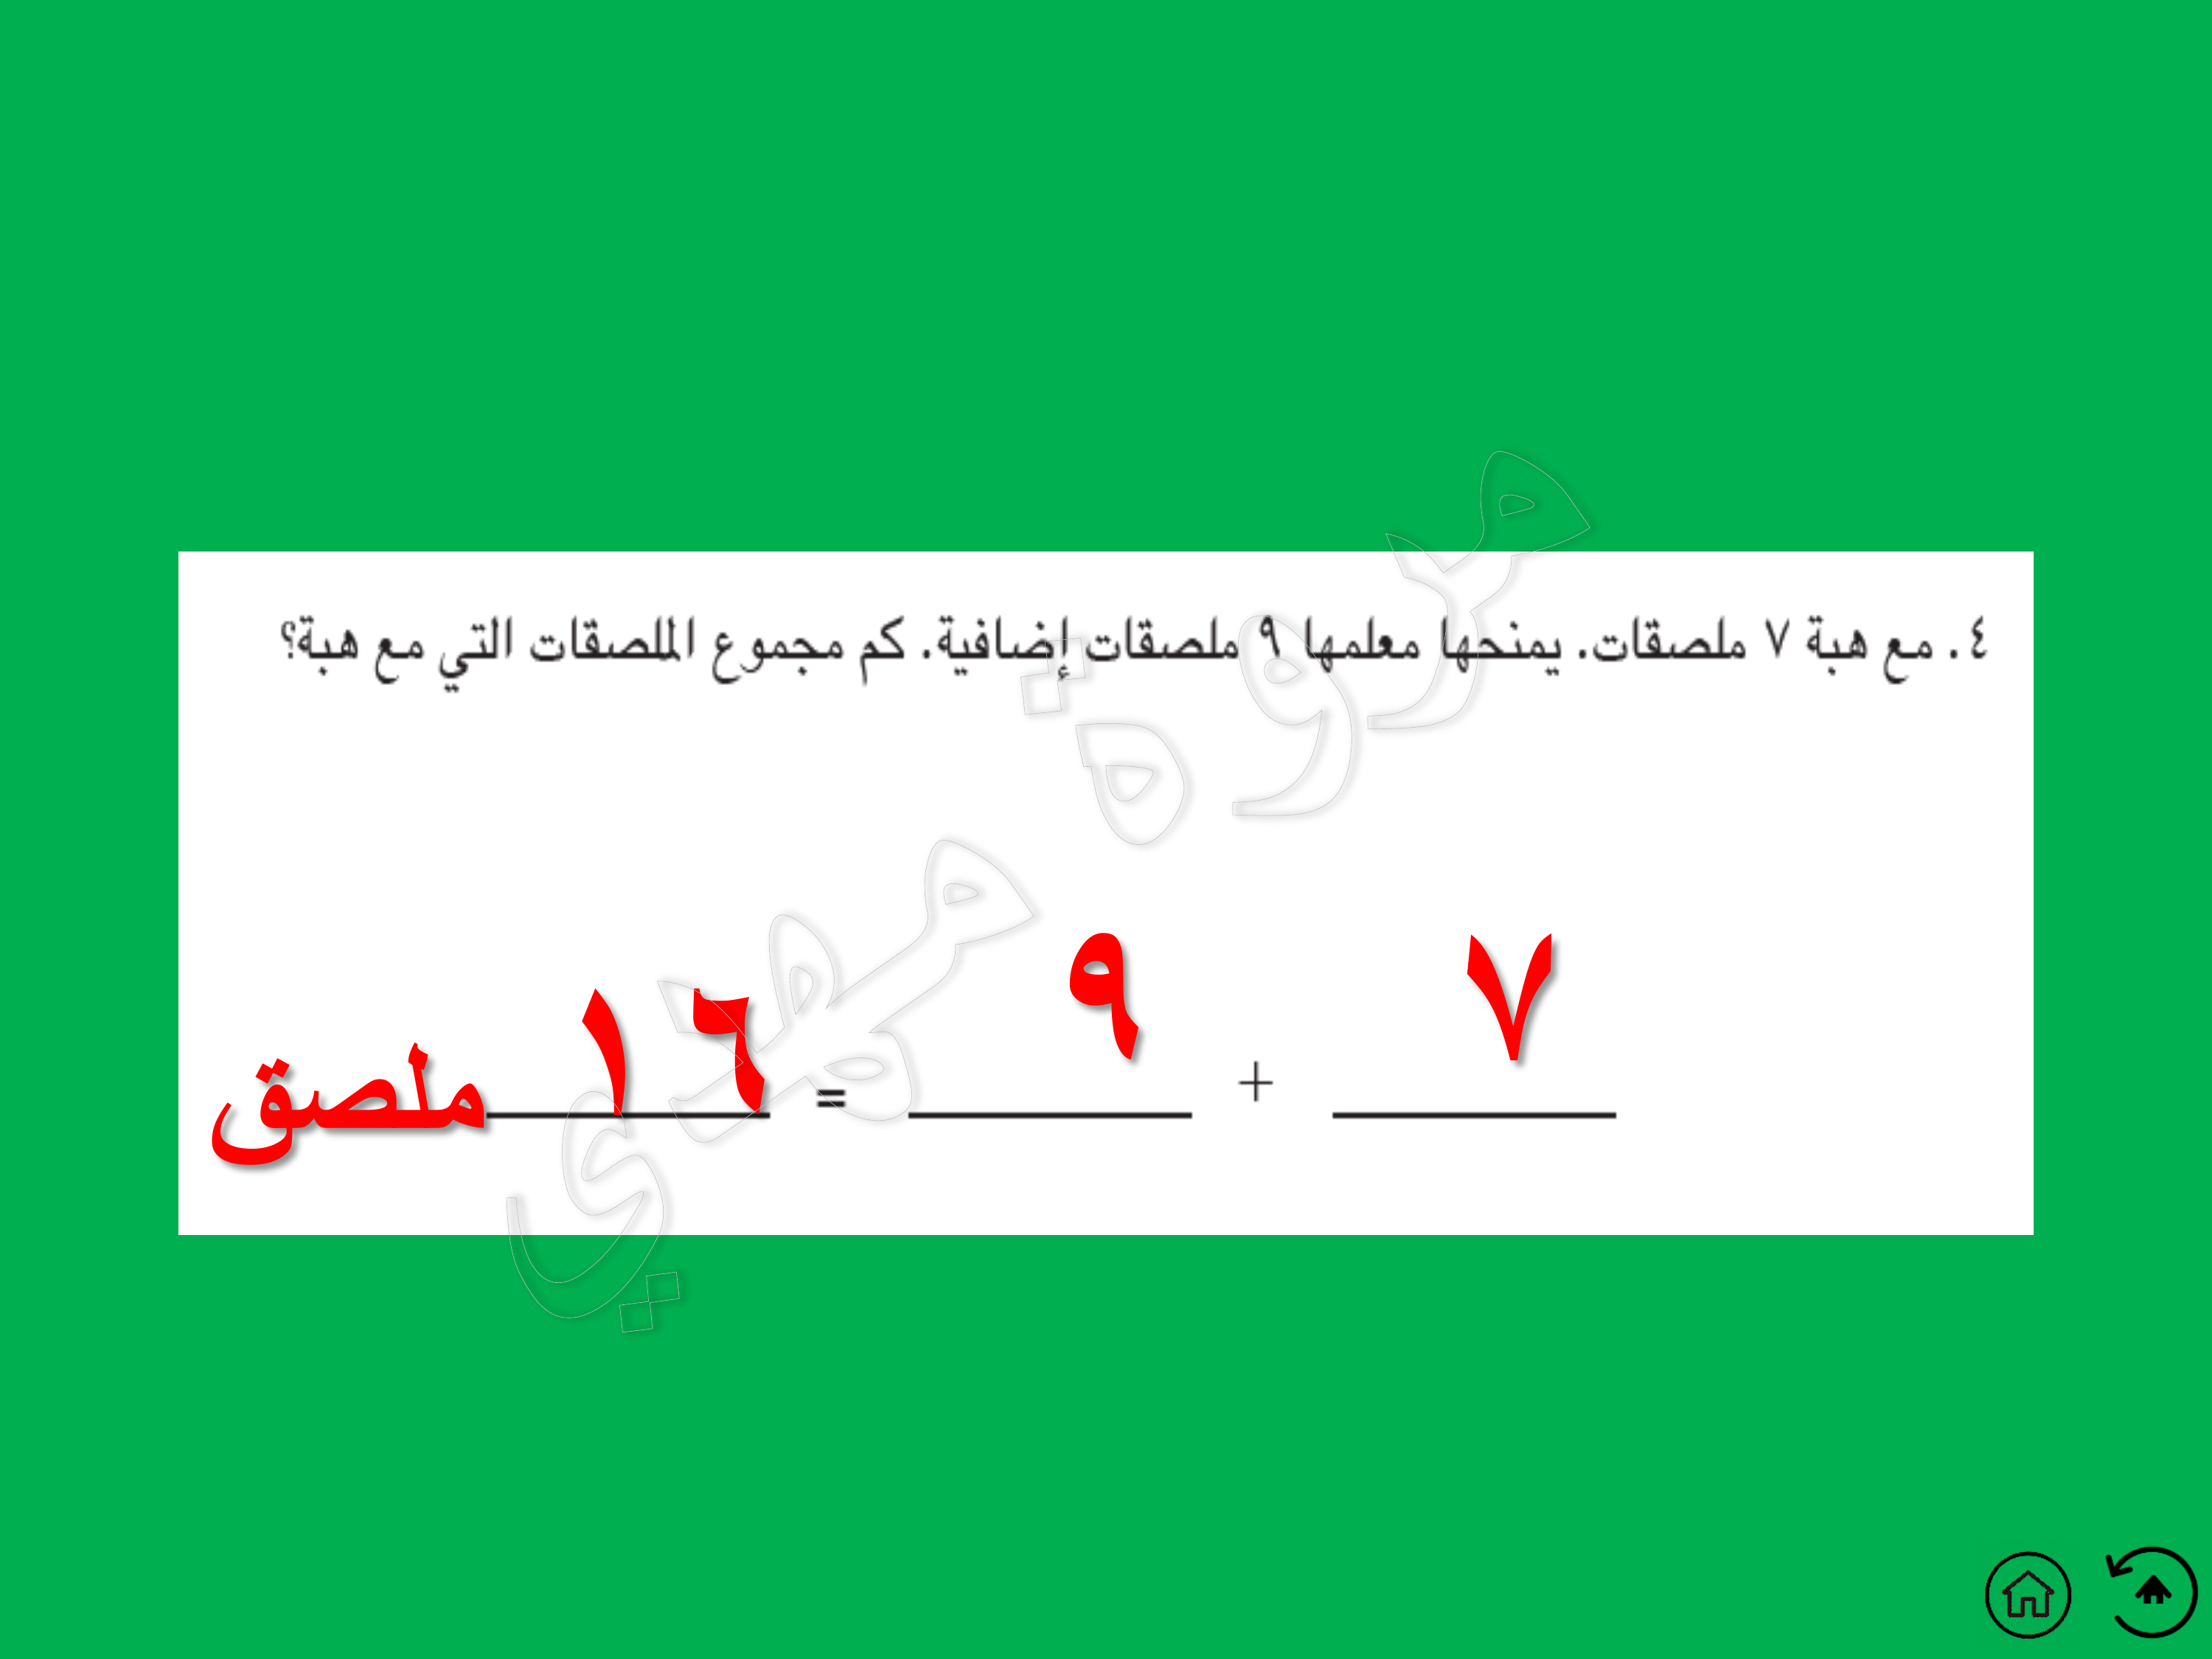 ٤. مع هبة ٧ ملصقات. يمنحها معلمها ٩ ملصقات إضافية. كم مجموع الملصقات التي مع هبة؟
٧ + ٩ = ١٦ ملصق
مروه مهدي